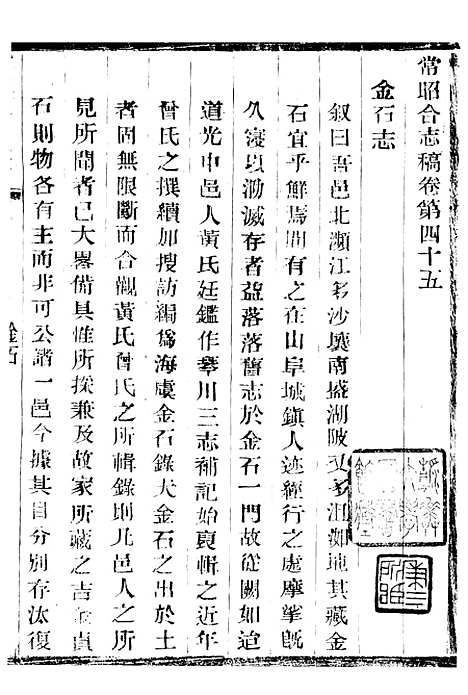 常昭合志稿卷第四十五
金石志
叙曰吾邑北瀕江多沙壤南盛湖陂又多沮洳地其藏金
石宜乎鮮焉間有之在山阜城鎮人迹經行之處摩挲旣
久寖以泐滅存者益落落舊志於金石一門故從闕如迨
道光中邑人黃氏廷鑑作琴川三志補記始裒輯之近年
曾氏之撰續加搜訪編爲海虞金石錄夫金石之出於土
者固無限斷而合觀黃氏曾氏之所輯錄則凡邑人之所
見所聞者已大畧備具惟所採兼及故家所藏之吉金貞
石則物各有主而非可公諸一邑今據其目分別存汰復
金石